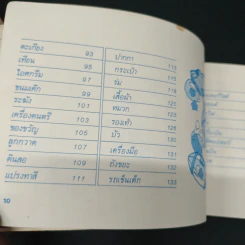 ตะเกียง 93
เทียน 95
ไอศกรีม 97
ขนมเค้ก 99
ระฆัง 101
เครื่องดนตรี 103
ของขวัญ 105
ลูกกวาด 107
ดินสอ 109
แปรงทาสี 111
ปากกา 113
กระเป๋า 115
ร่ม
เสื้อผ้า
หมวก 121
รองเท้า 125
บัว 127
เครื่องมือ 129
ถังขยะ 131
รถเข็นเด็ก 133
10